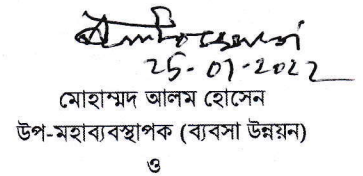 25-07-2022
মোহাম্মদ আলম হোসেন
উপ-মহাব্যবস্থাপক (ব্যবসা উন্নয়ন)
ও